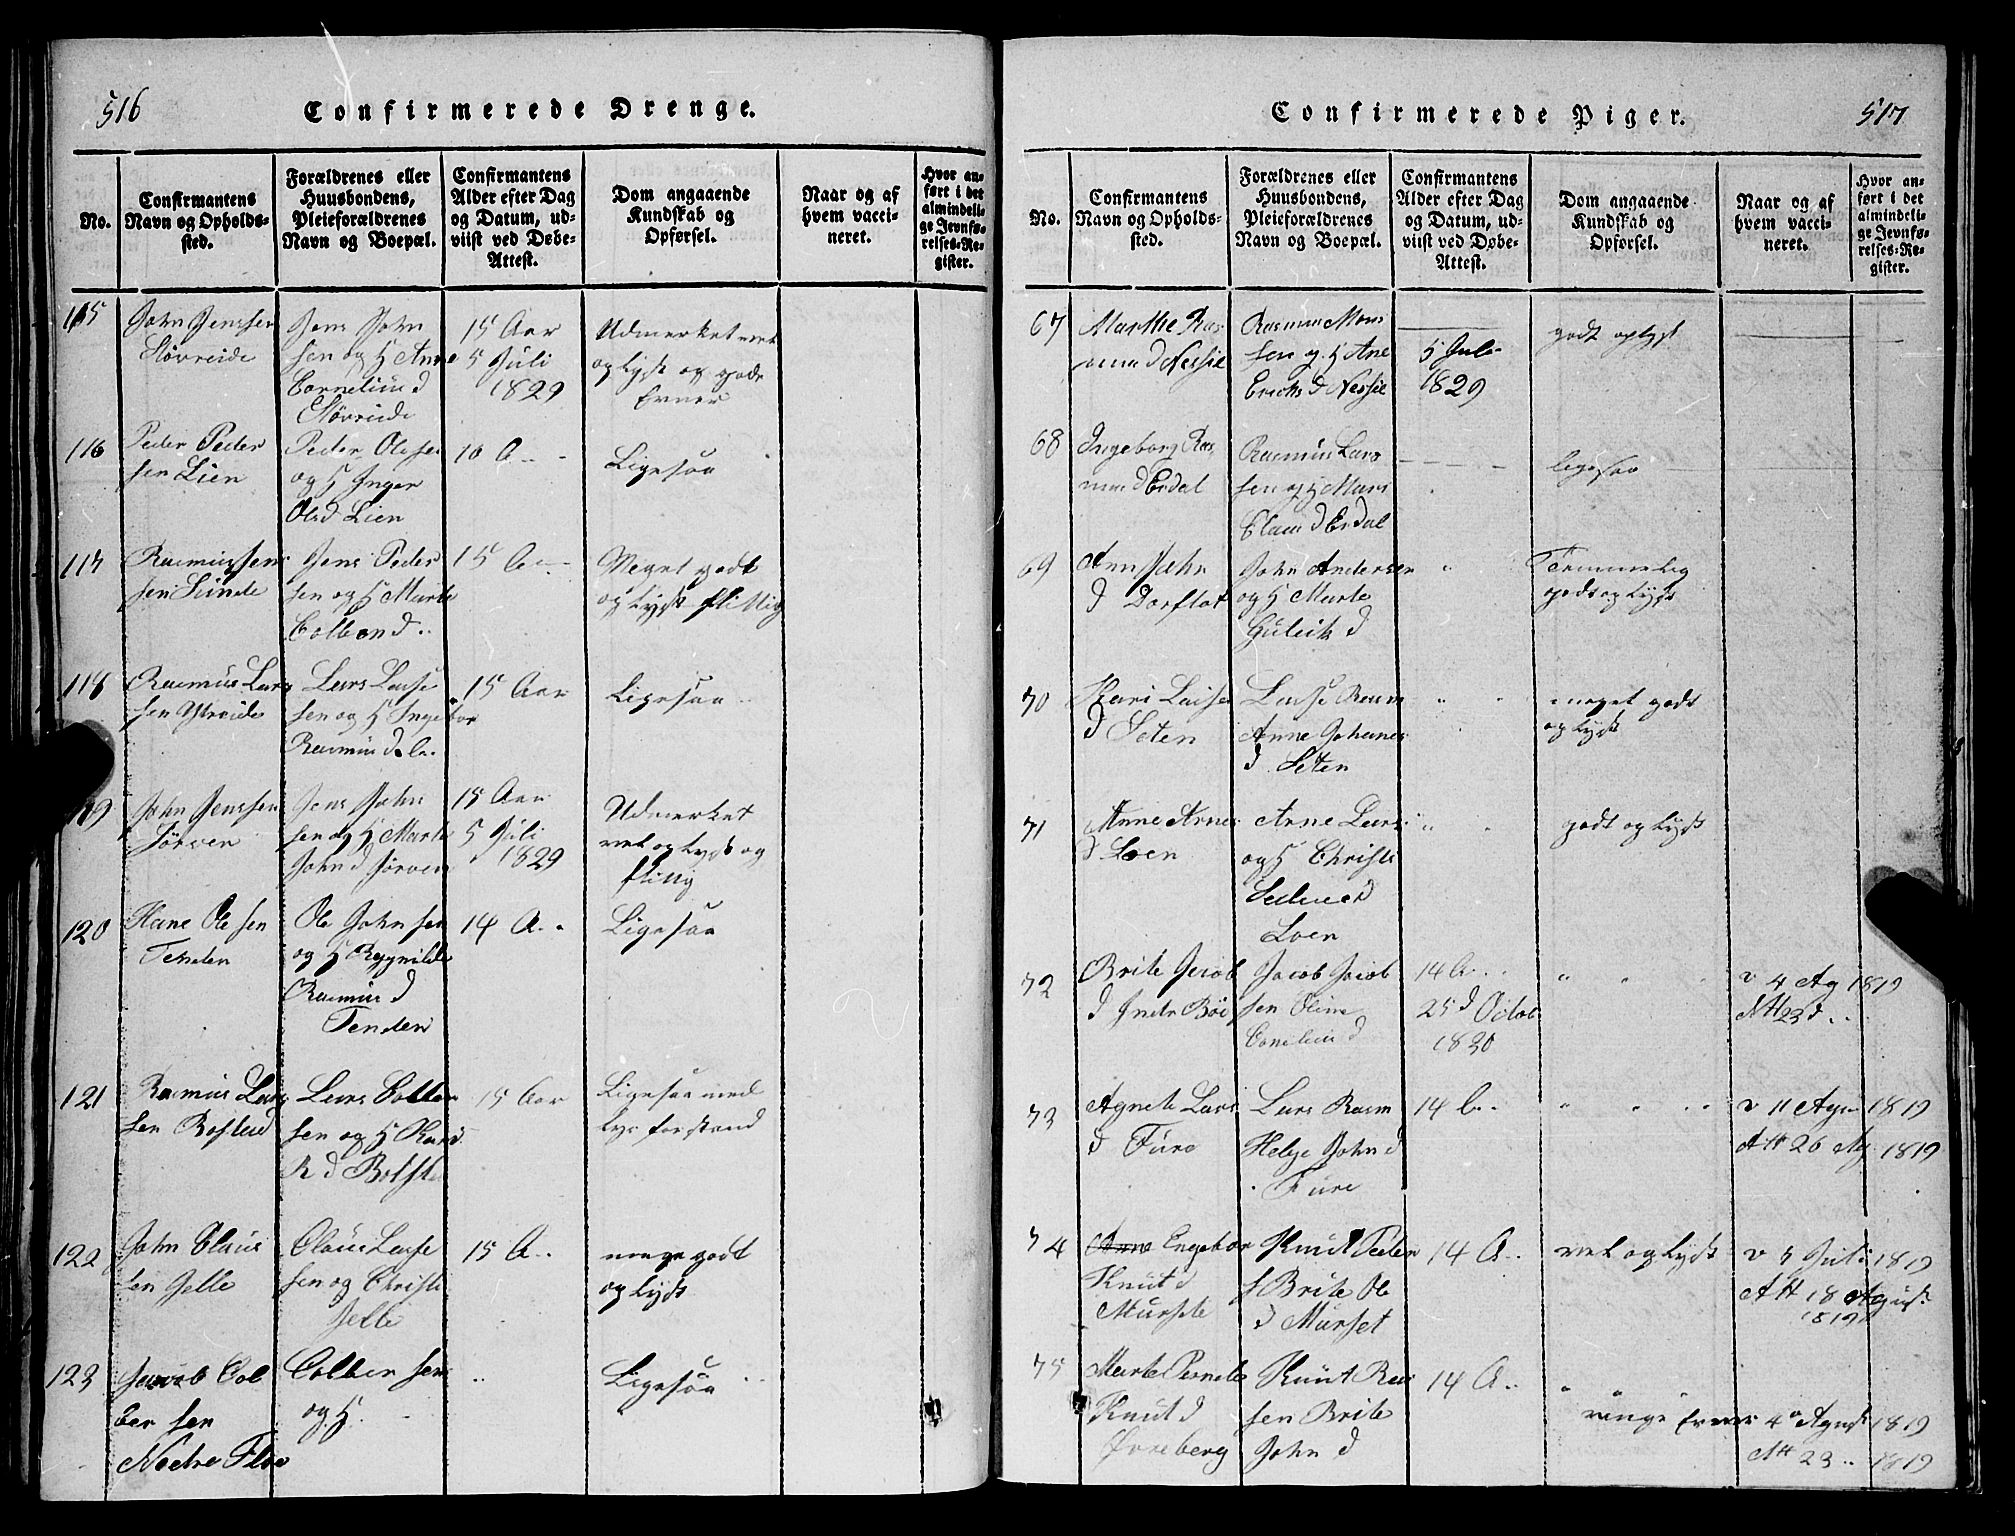 516
Confirmerede Drenge.
No.
Confirmantens
Navn og Opholds-
sted.
Forældrenes eller
Huusbondens,
Pleieforældrenes
Navn og Boepæl.
Confirmantens
Alder efter Dag
og Datum, ud-
viist ved Døbe-
Attest.
Dom angaaende
Kundskab og
Opførsel.
Naar og af
hvem vacci-
neret.
Hvor an-
ført i det
almindeli-
ge Jevnfø-
relses-Re-
gister.
115
John Jenssen
Støvreide
Jens John
sen og H Anne
Corneliu d
Støvreide
15 Aar
5 Juli
1829
Udmerket vel
oplyst og gode
Evner
116
Peder Peder
sen Lien
Peder Olsen
og H Inger
Ols d Lien
Ligesaa
117
Rasmus Jens
sen Sunde
Jens Peder
sen og H Marte
Colben d
15 A
Meget godt
oplyst flittig
118
Rasmus Lars
sen
Lars Lasse
sen og H Ingebor
Rasmus d
15 Aar
Ligesaa
119
John Jenssen
Sørven
Jens John
sen og H Marte
John d Sørven
15 Aar
5 Juli
1829
Udmerket
vel oplyst og
flitig
120
Hans Olesen
Tenden
Ole Johnsen
og H Ragnilde
Rasmus d
Tenden
14 A
Ligesaa
121
Rasmus Lars
sen
Lars Colben
sen og H Kari
R d
15 Aar
Ligesaa med
forstand
122
John Claus
sen Jelle
Claus Lasse
sen og Christi
Jelle
15 A
mege godt
oplyst
123
Jacob Col
ben sen
Nedre Floe
Colben sen
og H
Ligesaa
517
Confirmerede Piger.
No.
Confirmantens
Navn og Opholds-
sted.
Forældrenes eller
Huusbondens,
Pleieforældrenes
Navn og Boepæl.
Confirmantens
Alder efter Dag
og Datum, ud-
viist ved Døbe-
Attest.
Dom angaaende
Kundskab og
Opførsel.
Naar og af
hvem vacci-
neret.
Hvor an-
ført i det
almindeli-
ge Jevnfø-
relses-Re-
gister.
67
Marthe Ras
mus d Nessie
Rasmus Mons
sen og H Ane
Erichs d Nessie
5 Juli
1829
godt oplyst
68
Ingeborg Ras
mus d Erdal
Rasmus Lars
sen og H Mari
Elaus d Erdal
ligesaa
69
Ann John
d Dorflot
John Andersen
og H Marte
Guleik d
Temmelig
godt oplyst
70
Kari Lasse
d Seten
Lasse Rasm
Anne Johanes
d Seten
meget godt
oplyst
71
Anne Arnes
d Loen
Arne Lars
og H Christi
Loen
godt oplyst
72
Brite Jacob
d Indr Bøe
Jacob Jacob
sen Oline
Corneliu d
14 A
25 d Octob
1830
v 4 Ag 1819
Att 23 d
73
Agnete Lars
d Fure
Lars Rasm
Helge John d
Fure
14 A
v 11 Agu 1819
Att 26 Ag 1819
74
Engebor
Knut d
Murset
Knut Peder
s Brite Ole
d Murset
14 A
vel oplyst
v 5 Juli 1819
Att 18 Agust
1819
75
Marte Pernele
Knut d
Øvreberg
Knut Ras
sen Brite
John d
14 A
ringe Evner
4 Agust 1819
Att 23 1819